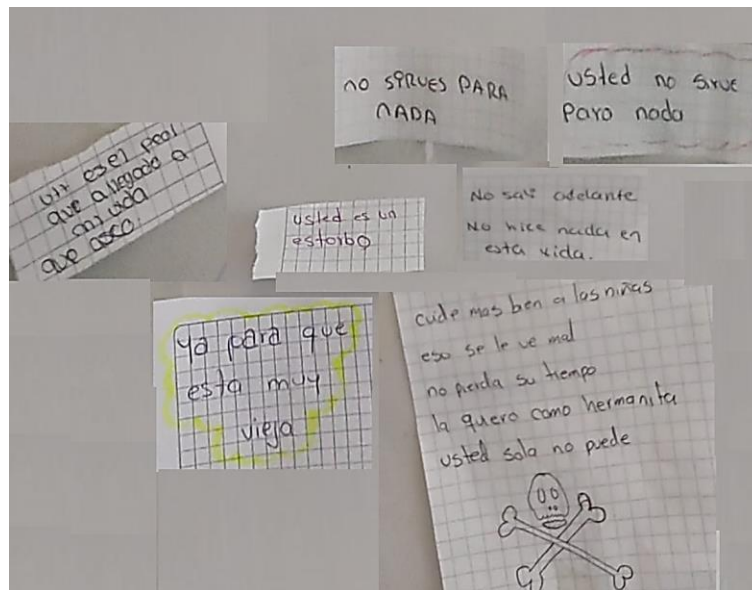 no SIRUES PARA
NADA
usted no sirve
para nada
Ut. es el peol
que a llegado a
mi vida
que asco.
usted es un
estorbo
No salí adelante
No hice nada en
esta vida.
Ya para que
esta muy
vieja
cuide mas ben a las niñas
eso se le ve mal
no pierda su tiempo
la quero como hermanita
usted sola no puede